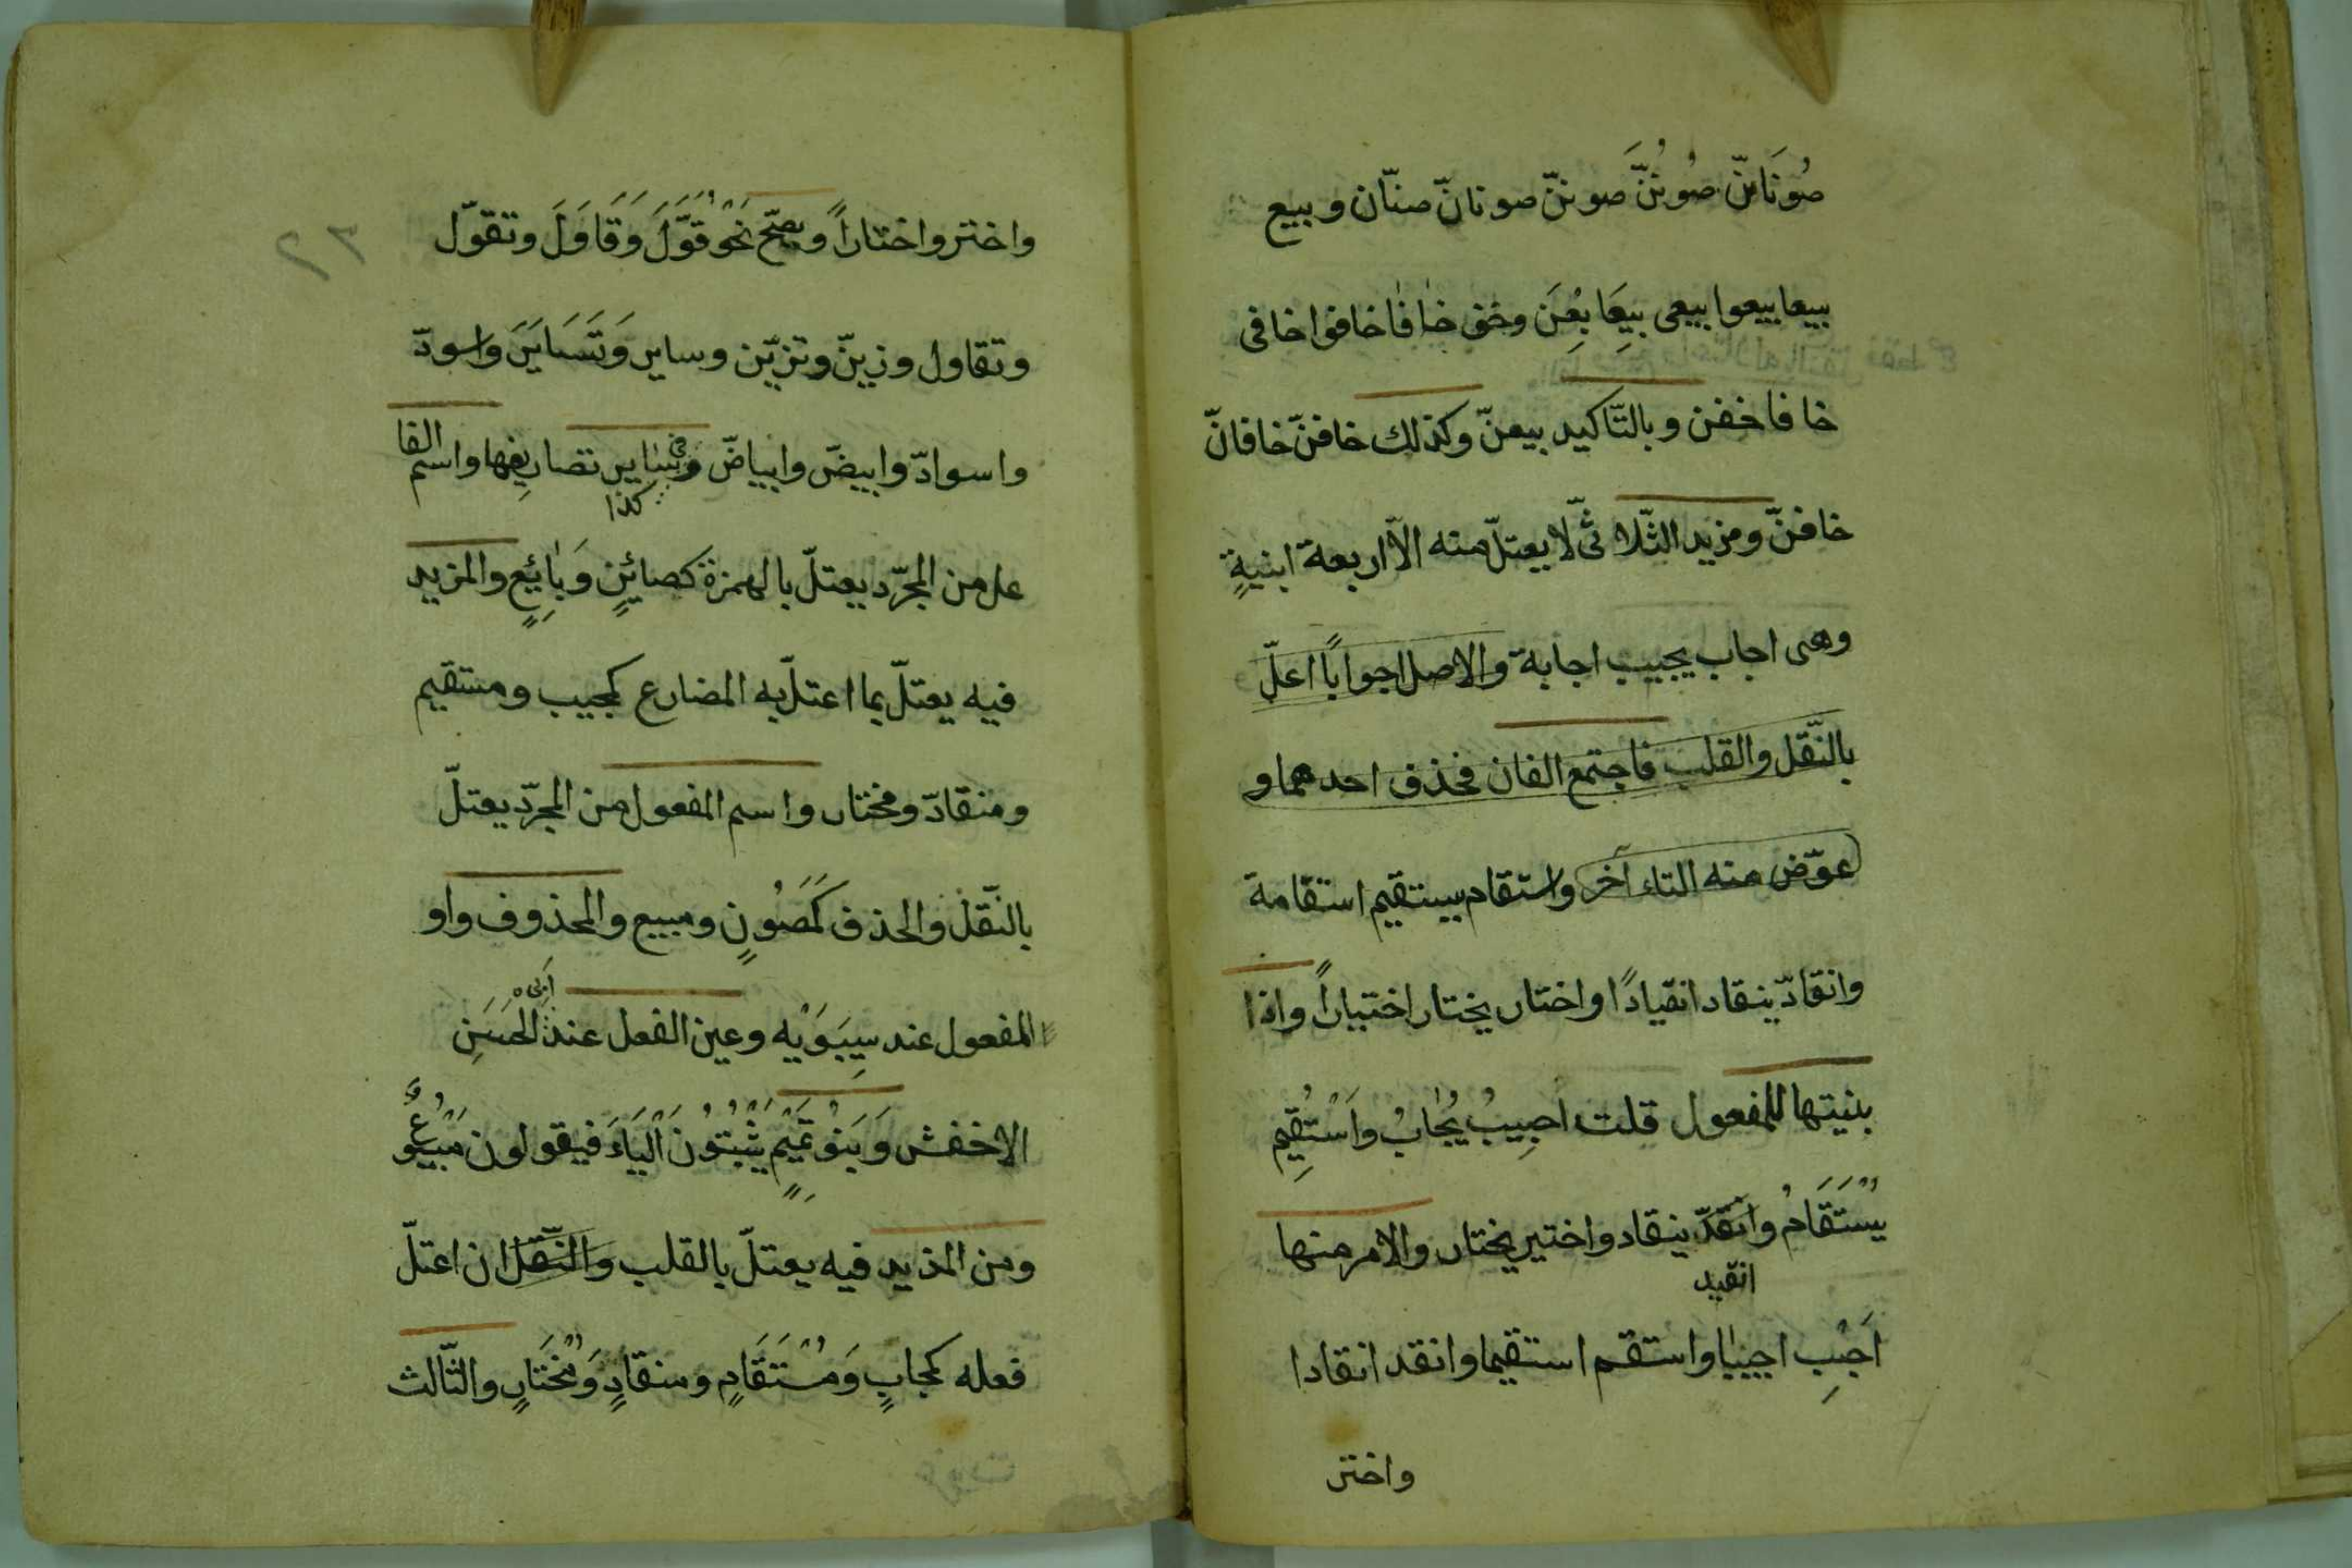 صُونَانّ صُونُنَّ صوننّ صونانّ صنّان وبيع
بيعا بيعوا بيعى بِيعَا بِعْنَ وخف خافا خافوا خافى
خافا خفن وبالتّاكيد بيعنّ وكذلك خافنّ خافانّ
خافنّ ومزيد الثّلاثىّ لا يعتلّ منه الّا اربعة ابنيةٍ
وهى اجاب يجيب اجابة والاصل اجوابًا اعلّ
بالنّقل والقلب فاجتمع الفان فحذف احدهما و
عوّض منه التاء آخر واستقام يستقيم استقامة
وانقادّ ينقاد انقيادًا واختار يختار اختياراً واذا
بنيتها للمفعول قلت اجِيبُ يُجَابُ واَسْتُقِيم
يُسْتَقَامُ وانقدّ ينقاد واختير يختار والامر منها
انقيد
اَجْبِ اجيبا واستقم استقيما وانقد انقادا
واختر
٣٢
واختر واختاراً ويصحّ نَحْو قَوَّلَ وَقَاوَلَ وتقوّل
وتقاول وزيّن وتزيّن وساير وَتَسَايَرَ واسودّ
واسوادّ وابيضّ وابياضّ وفى ساير تصاريفها واسم الفا
كذا
عل من المجرّد يعتلّ بالهمزة كصائنٍ وَبَائعٍ والمزيد
فيه يعتلّ بما اعتلّ به المضارع كمجيب ومستقيم
ومنقادّ ومختار واسم المفعول من المجرّد يعتلّ
بالنّقل والحذف كَمَصُونٍ ومبيع والمحذوف واو
المفعول عند سِيبَوَيْه وعين الفعل عند ابى الحَسَنِ
الاخفش وَبَنُو تَمِيمٍ يُثْبِتُونَ اَلْيَاءَ فيقولون مَبْيُوعٌ
ومن المذيد فيه يعتلّ بالقلب والنّقل ان اعتلّ
فعله كمجابٍ وَمُسْتَقَامٍ ومنقادٍ وَمُخْتَارٍ والثّالث